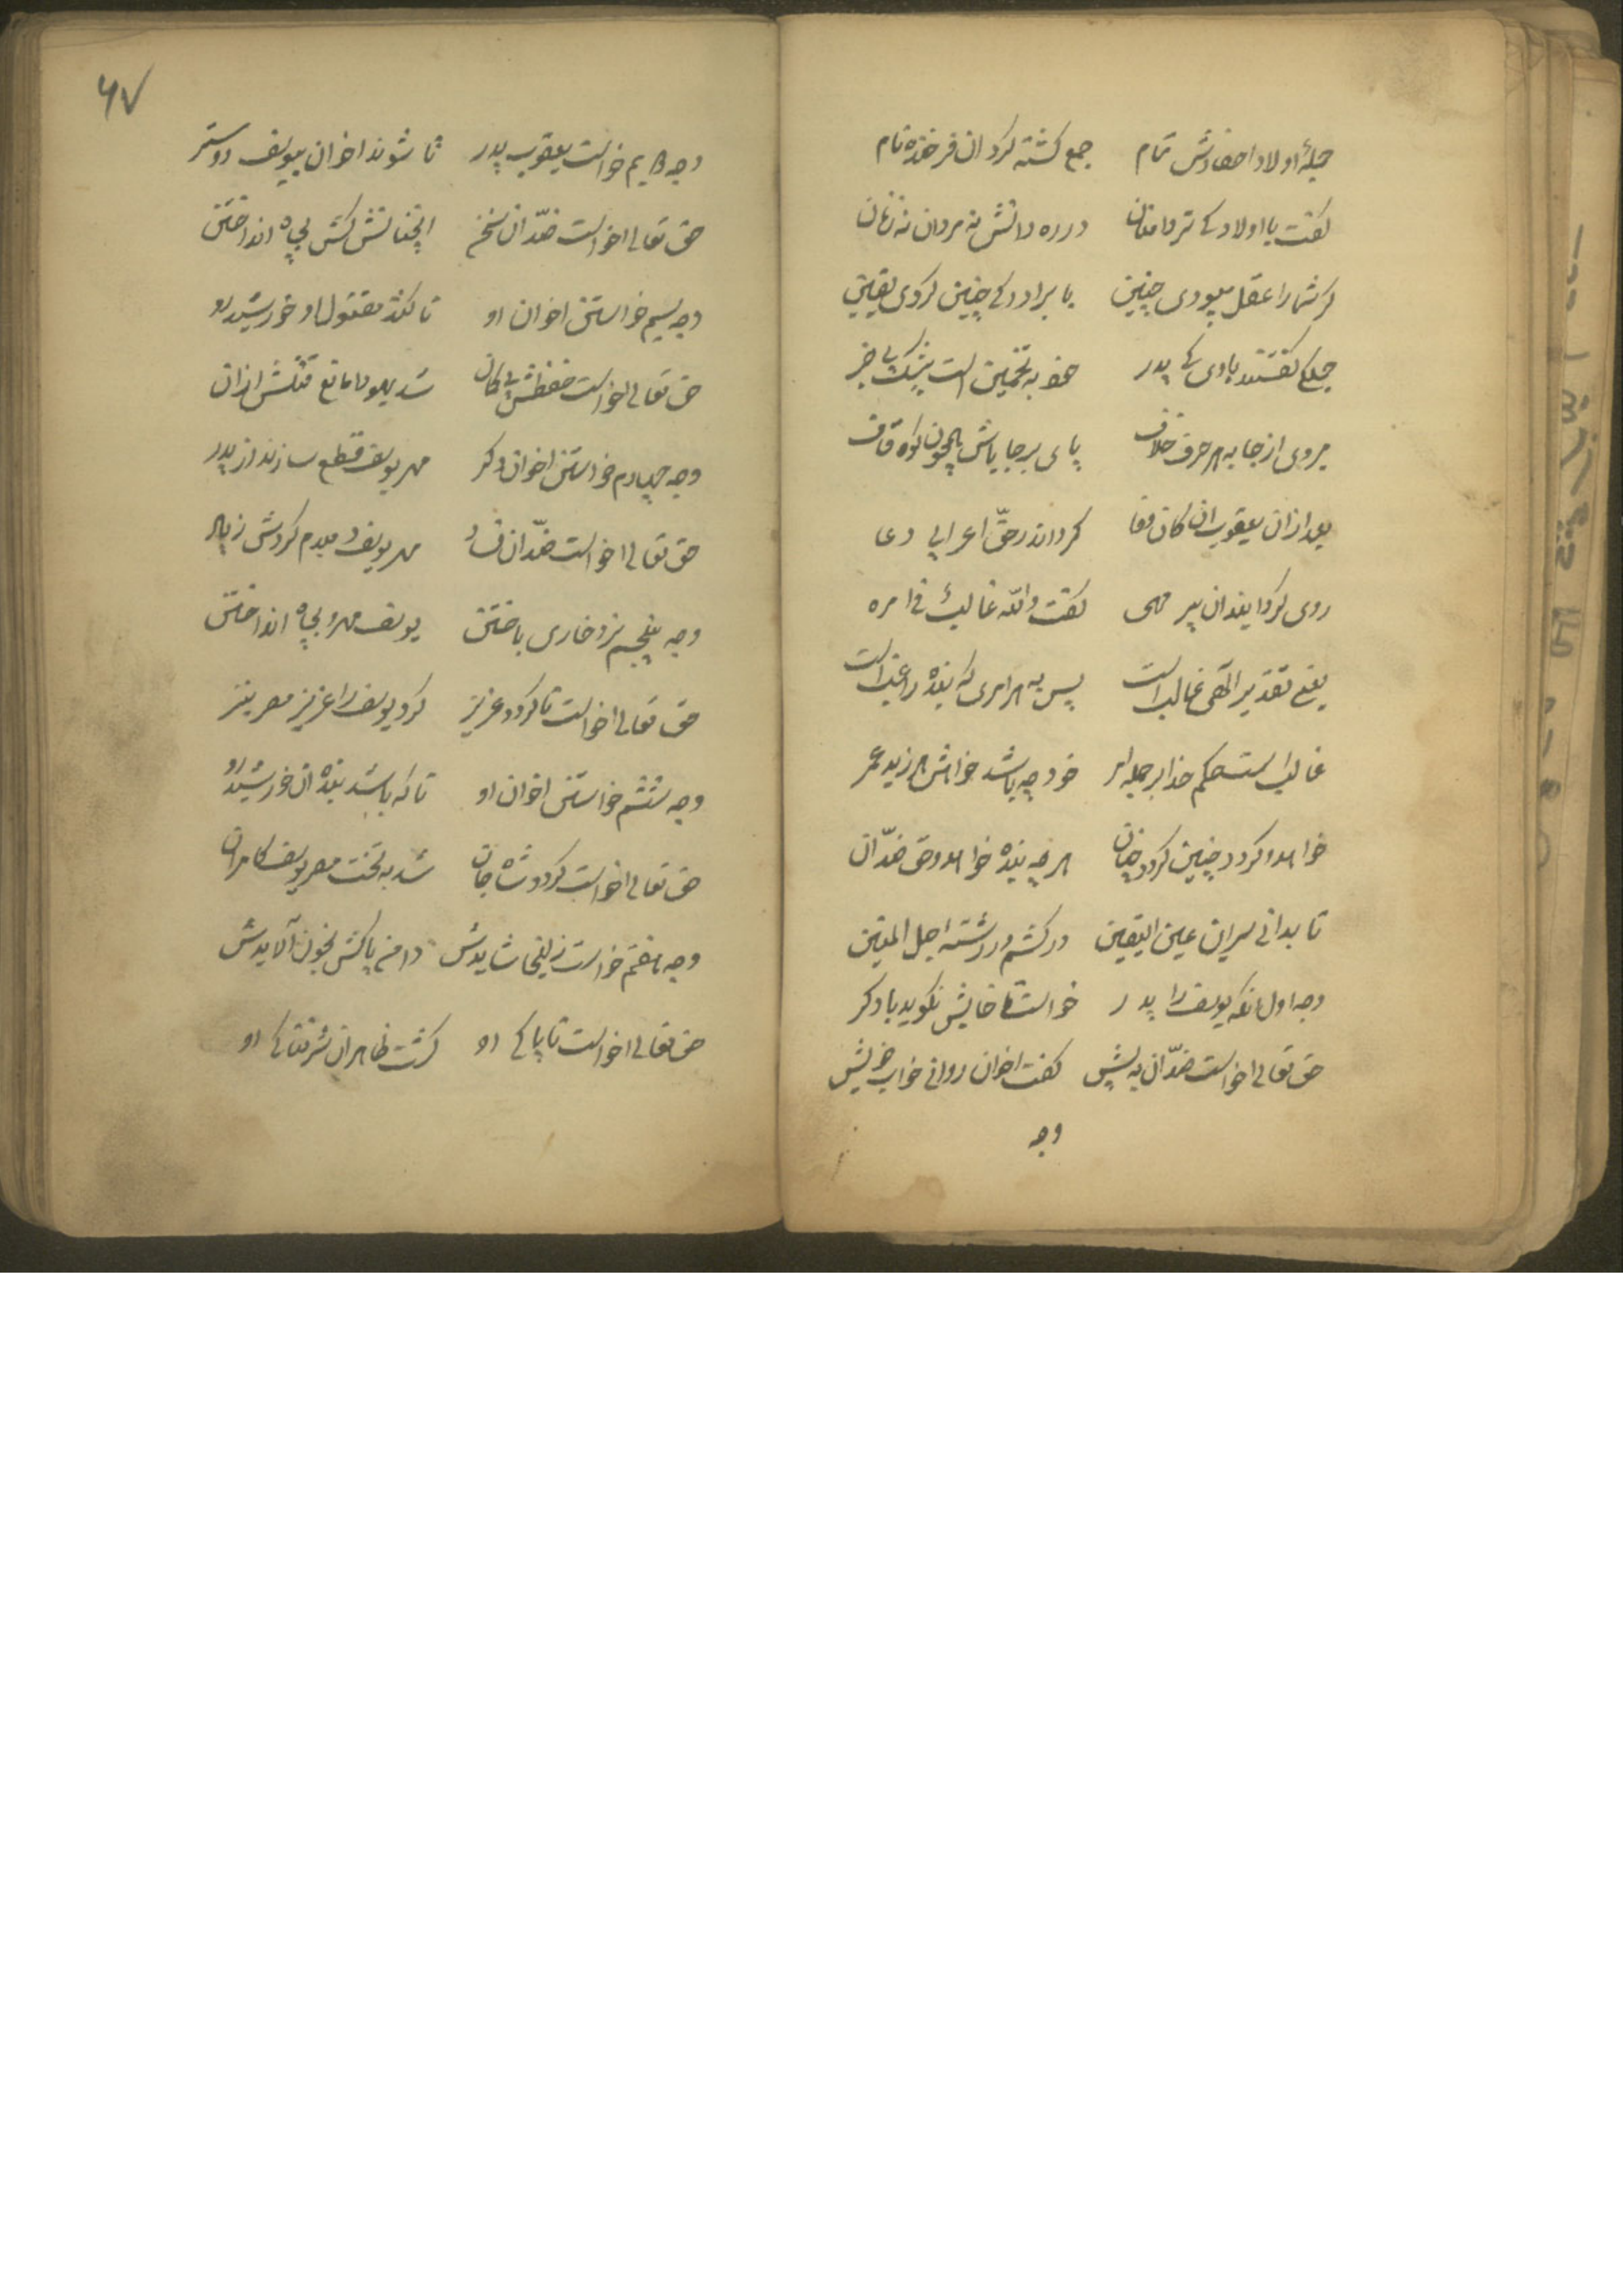 جملهٔ اولاد احفادش تمام جمع گشته گرد ان فرخنده نام
گفت با اولاد کی تردامنان در ره دانش نه مردان نه زنان
گر شما را عقل میبودی چنین با برادر کی چنین کردی یقین
جملگی گفتند باوی کی پدر به تخمین است بیشک بی خبر
میروی از جا به هر حرف خلاف پای برجا باش همچون کوه قاف
بعد ازان یعقوب ان کان وفا کرد اندر حق اعرابی دعا
روی کرد ان پیر مهی گفت والله غالب فی امره
یعنی تقدیر الهی غالب است پس به هر امری که بنده راغب است
غالب است حکم خدا بر جمله امر خود چه باشد خواهش هر زید عمر
خواهد او گردد چنین گردد چنان هر چه بنده خواهد و حق ضد آن
تا بدانی سر این عین الیقین درکشم در رشته حبل المتین
وجه اول آنکه یوسف را پدر خواست تا خوابش نگوید با دگر
حق تعالی خواست ضد آن به پیش گفت اخوان را خواب خویش
وجه
۶۷
وجه دویم خواست یعقوب پدر تا شوند اخوان بیوسف دوستر
حق تعالی خواست ضد ان انچنانش کش بچاه انداختن
وجه سیم خواستن اخوان او تا کنند مقتول او خورشید رو
حق تعالی خواست حفظش بی گمان شد یهودا مانع قتلش ازان
وجه چهارم خواستن اخوان دگر مهر یوسف قطع سازند از پدر
حق تعالی خواست ضد ان مهر یوسف دمبدم کردش زیاد
وجه پنجم نرد خاری باختن یوسف مهرو بچاه انداختن
حق تعالی خواست تا گردد عزیز کرد یوسف را عزیز مصر نیز
وجه ششم خواستن اخوان او تا که باشد بنده ان خورشید رو
حق تعالی خواست گردد شاه جان شد به تخت مصر یوسف کامران
وجه هفتم خواست زلیخا شایدش دامن پاکش بخون آلایدش
حق تعالی خواست تا پاکی او گشت ظاهر ان او